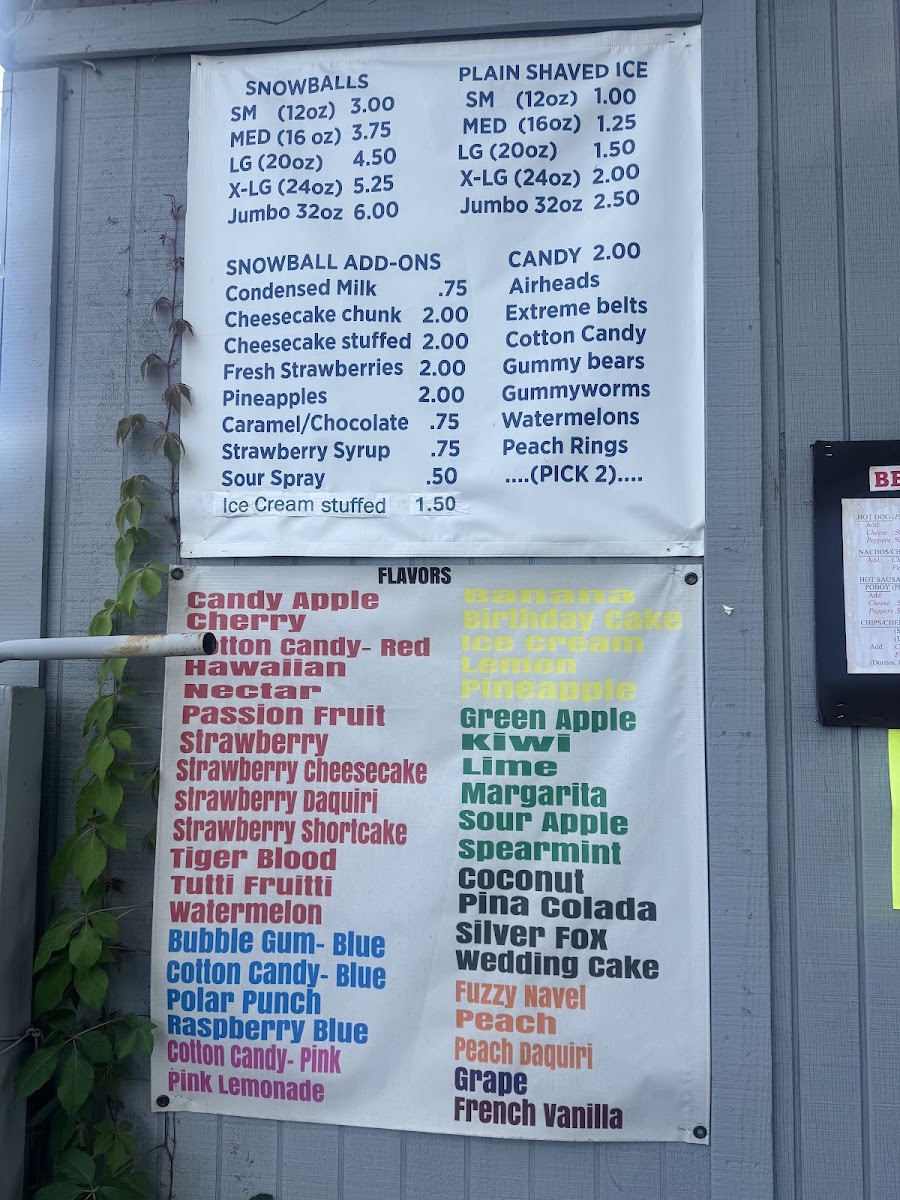 SNOWBALLS
SM (12oz) 3.00
MED (16 oz) 3.75
LG (20oz) 4.50
X-LG (24oz) 5.25
Jumbo 32oz 6.00
PLAIN SHAVED ICE
SM (12oz) 1.00
MED (16oz) 1.25
LG (20oz) 1.50
X-LG (24oz) 2.00
Jumbo 32oz 2.50
SNOWBALL ADD-ONS
Condensed Milk .75
Cheesecake chunk 2.00
Cheesecake stuffed 2.00
Fresh Strawberries 2.00
Pineapples 2.00
Caramel/Chocolate .75
Strawberry Syrup .75
Sour Spray .50
Ice Cream stuffed 1.50
CANDY 2.00
Airheads
Extreme belts
Cotton Candy
Gummy bears
Gummyworms
Watermelons
Peach Rings
....(PICK 2)....
FLAVORS
Candy Apple
Cherry
otton Candy- Red
Hawaiian
Nectar
Passion Fruit
Strawberry
Strawberry Cheesecake
Strawberry Daquiri
Strawberry Shortcake
Tiger Blood
Tutti Fruitti
Watermelon
Bubble Gum- Blue
Cotton Candy- Blue
Polar Punch
Raspberry Blue
Cotton Candy- Pink
Pink Lemonade
Banana
Birthday Cake
Ice Cream
Lemon
Pineapple
Green Apple
Kiwi
Lime
Margarita
Sour Apple
Spearmint
Coconut
Pina Colada
Silver Fox
Wedding Cake
Fuzzy Navel
Peach
Peach Daquiri
Grape
French Vanilla
BE
HOT DOG
Add:
Cheese
Peppers
NACHOS/CH
Add:
HOT SAUSA
POBOY
Add:
Cheese
Peppers
CHIPS/CHE
Add:
(Doritos,